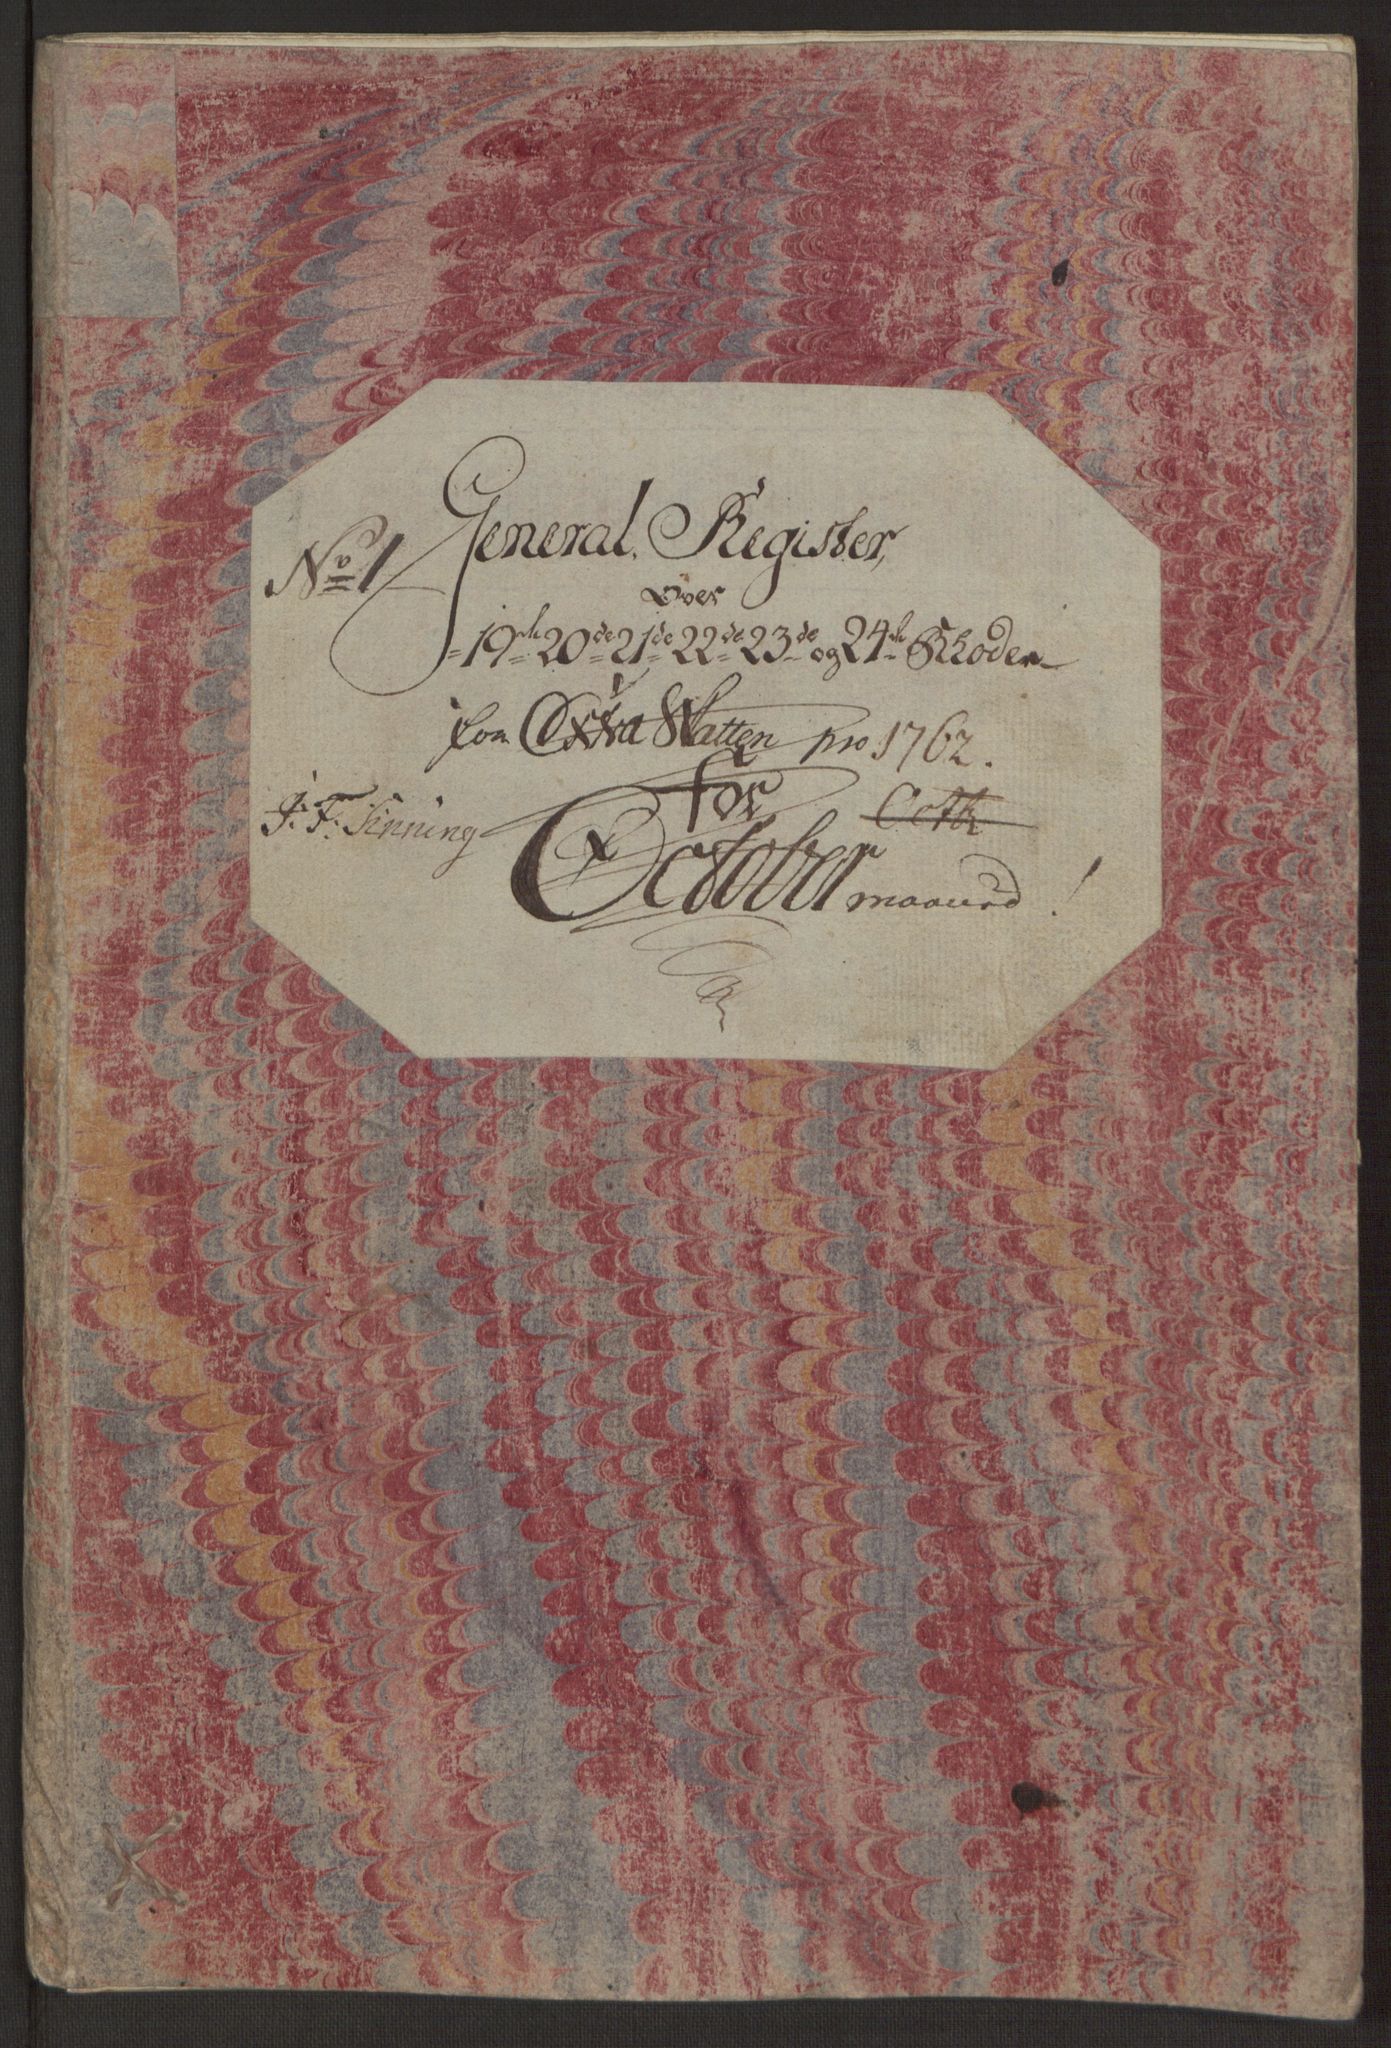 No 1 General Register,
over
19de 20de 21de 22de 23de og 24de Rhoder
som Extra Skatten pro 1762.
for
J: F: Finning
October maaned!